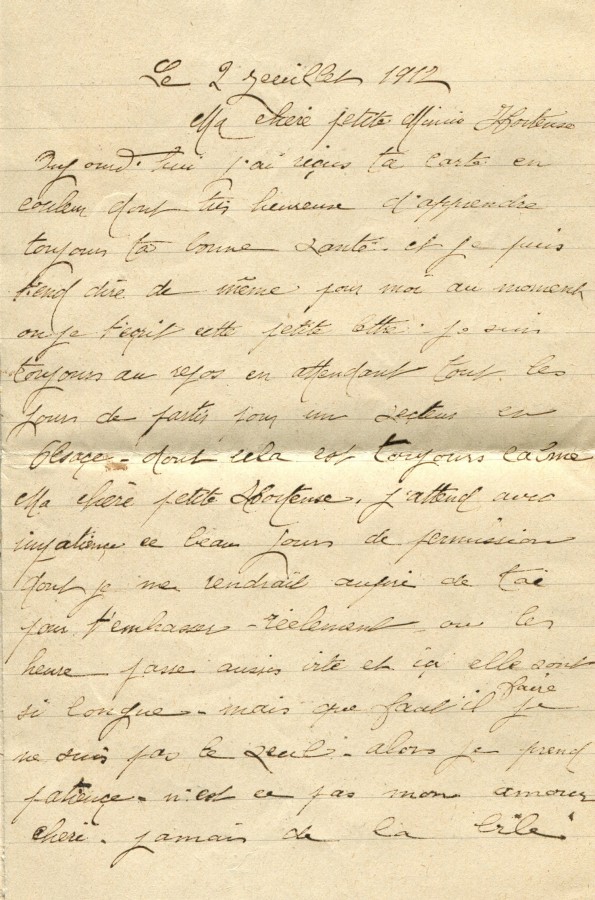 Le 2 jeuillet 1917
Ma chére petite Mimie Hortense
Aujourd'hui j'ai reçus ta carte en
couleur dont tres heureuse d'apprendre
toujours ta bonne santé. et je puis
t'end dire de même pour moi au moment
ou je t'ecrit cette petite lettre. je suis
toujours au repos en attendant tout les
jours de partir pour un secteur en
Alsace - dont cela est toujours calme
Ma chére petite Hortense, j'attend avec
impatience ce beau jours de permission
dont je me rendrait aupré de toi
pour t'embrasser réelement ou les
heure passe aussis vite et ici elle sont
si longue - mais que faut'il faire je
ne suis pas le seul - alors je prend
patience - n'est ce pas mon amour
cheri - jamais de la bile